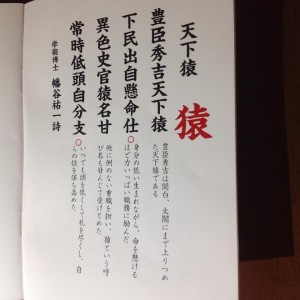 天下猿
猿
豊臣秀吉天下猿
豊臣秀吉は関白、太閤にまで上りつめ
た天下猿である
下民出自懸命仕○
身分の低い生まれながら、命を懸ける
ほど力いっぱい職務に励んだ
異色史官猿名甘
他に例のない重職を担い、猿という呼
び名も甘んじて受けとめた
常時低頭自分支○
いつでも頭を低くして礼を尽くし、自
らの位を保ち高めた
学術博士 幡谷祐一詩